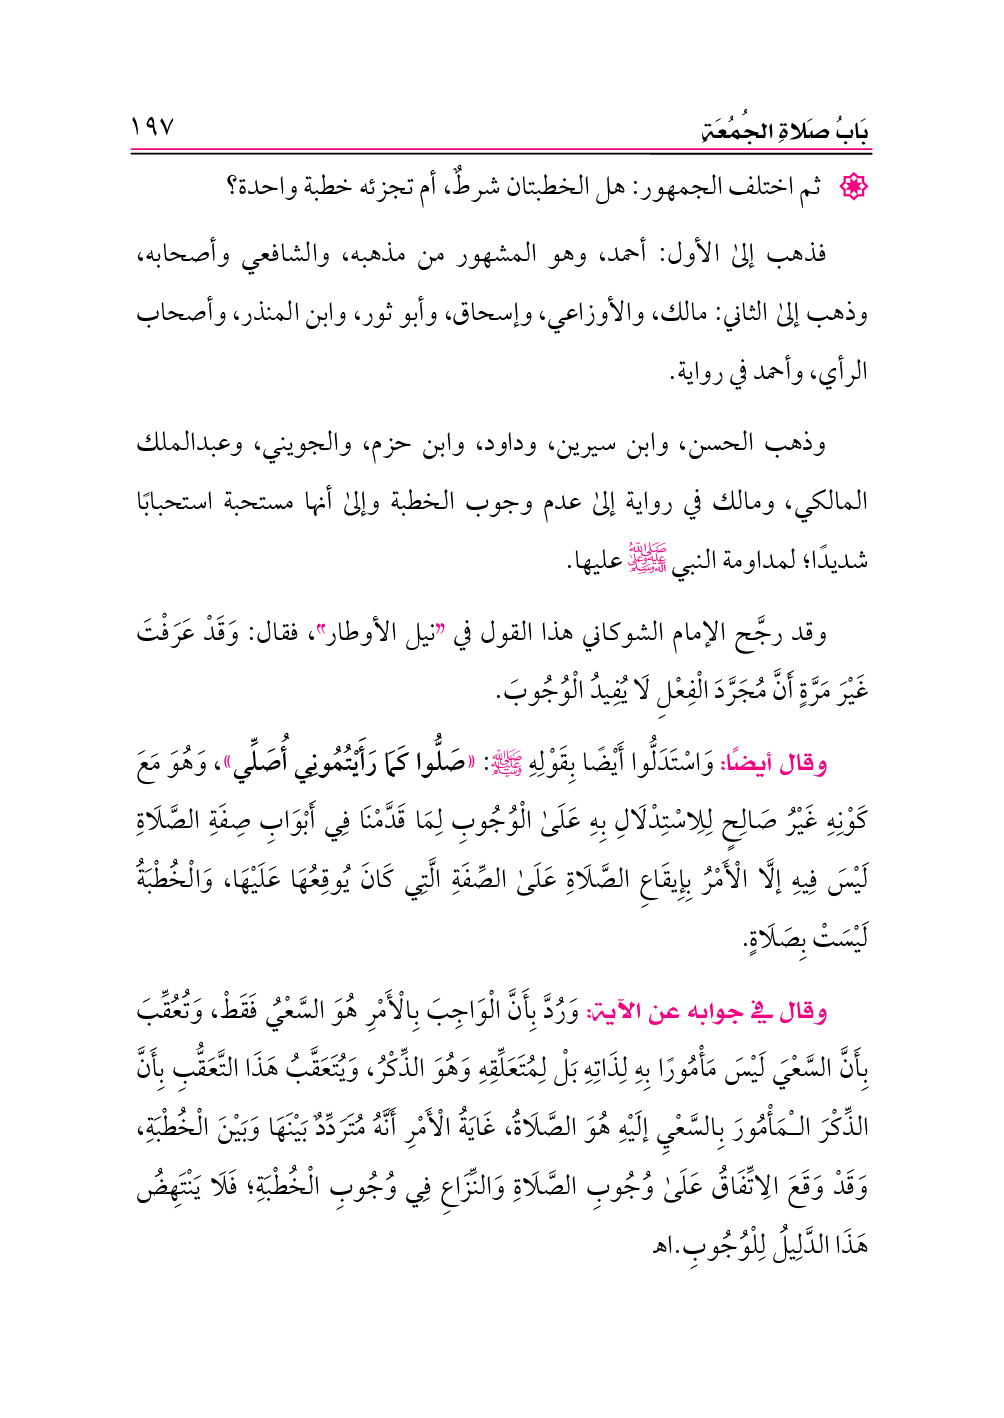 بَابُ صَلاةِ الجُمُعَةِ ١٩٧
ثم اختلف الجمهور: هل الخطبتان شرطٌ، أم تجزئه خطبة واحدة؟
فذهب إلىٰ الأول: أحمد، وهو المشهور من مذهبه، والشافعي وأصحابه،
وذهب إلىٰ الثاني: مالك، والأوزاعي، وإسحاق، وأبو ثور، وابن المنذر، وأصحاب
الرأي، وأحمد في رواية.
وذهب الحسن، وابن سيرين، وداود، وابن حزم، والجويني، وعبدالملك
المالكي، ومالك في رواية إلىٰ عدم وجوب الخطبة وإلىٰ أنها مستحبة استحبابًا
شديدًا؛ لمداومة النبي ﷺ عليها.
وقد رجَّح الإمام الشوكاني هذا القول في "نيل الأوطار"، فقال: وَقَدْ عَرَفْتَ
غَيْرَ مَرَّةٍ أَنَّ مُجَرَّدَ الْفِعْلِ لَا يُفِيدُ الْوُجُوبَ.
وقال أيضًا: وَاسْتَدَلُّوا أَيْضًا بِقَوْلِهِ ﷺ: «صَلُّوا كَمَا رَأَيْتُمُونِي أُصَلِّي»، وَهُوَ مَعَ
كَوْنِهِ غَيْرُ صَالِحٍ لِلِاسْتِدْلَالِ بِهِ عَلَىٰ الْوُجُوبِ لِمَا قَدَّمْنَا فِي أَبْوَابِ صِفَةِ الصَّلَاةِ
لَيْسَ فِيهِ إلَّا الْأَمْرُ بِإِيقَاعِ الصَّلَاةِ عَلَىٰ الصِّفَةِ الَّتِي كَانَ يُوقِعُهَا عَلَيْهَا، وَالْخُطْبَةُ
لَيْسَتْ بِصَلَاةٍ.
وقال في جوابه عن الآية: وَرُدَّ بِأَنَّ الْوَاجِبَ بِالْأَمْرِ هُوَ السَّعْيُ فَقَطْ، وَتُعُقِّبَ
بِأَنَّ السَّعْيَ لَيْسَ مَأْمُورًا بِهِ لِذَاتِهِ بَلْ لِمُتَعَلِّقِهِ وَهُوَ الذِّكْرُ، وَيُتَعَقَّبُ هَذَا التَّعَقُّبِ بِأَنَّ
الذِّكْرَ الْـمَأْمُورَ بِالسَّعْيِ إلَيْهِ هُوَ الصَّلَاةُ، غَايَةُ الْأَمْرِ أَنَّهُ مُتَرَدِّدٌ بَيْنَهَا وَبَيْنَ الْخُطْبَةِ،
وَقَدْ وَقَعَ الِاتِّفَاقُ عَلَىٰ وُجُوبِ الصَّلَاةِ وَالنِّزَاعِ فِي وُجُوبِ الْخُطْبَةِ؛ فَلَا يَنْتَهِضُ
هَذَا الدَّلِيلُ لِلْوُجُوبِ.اهـ